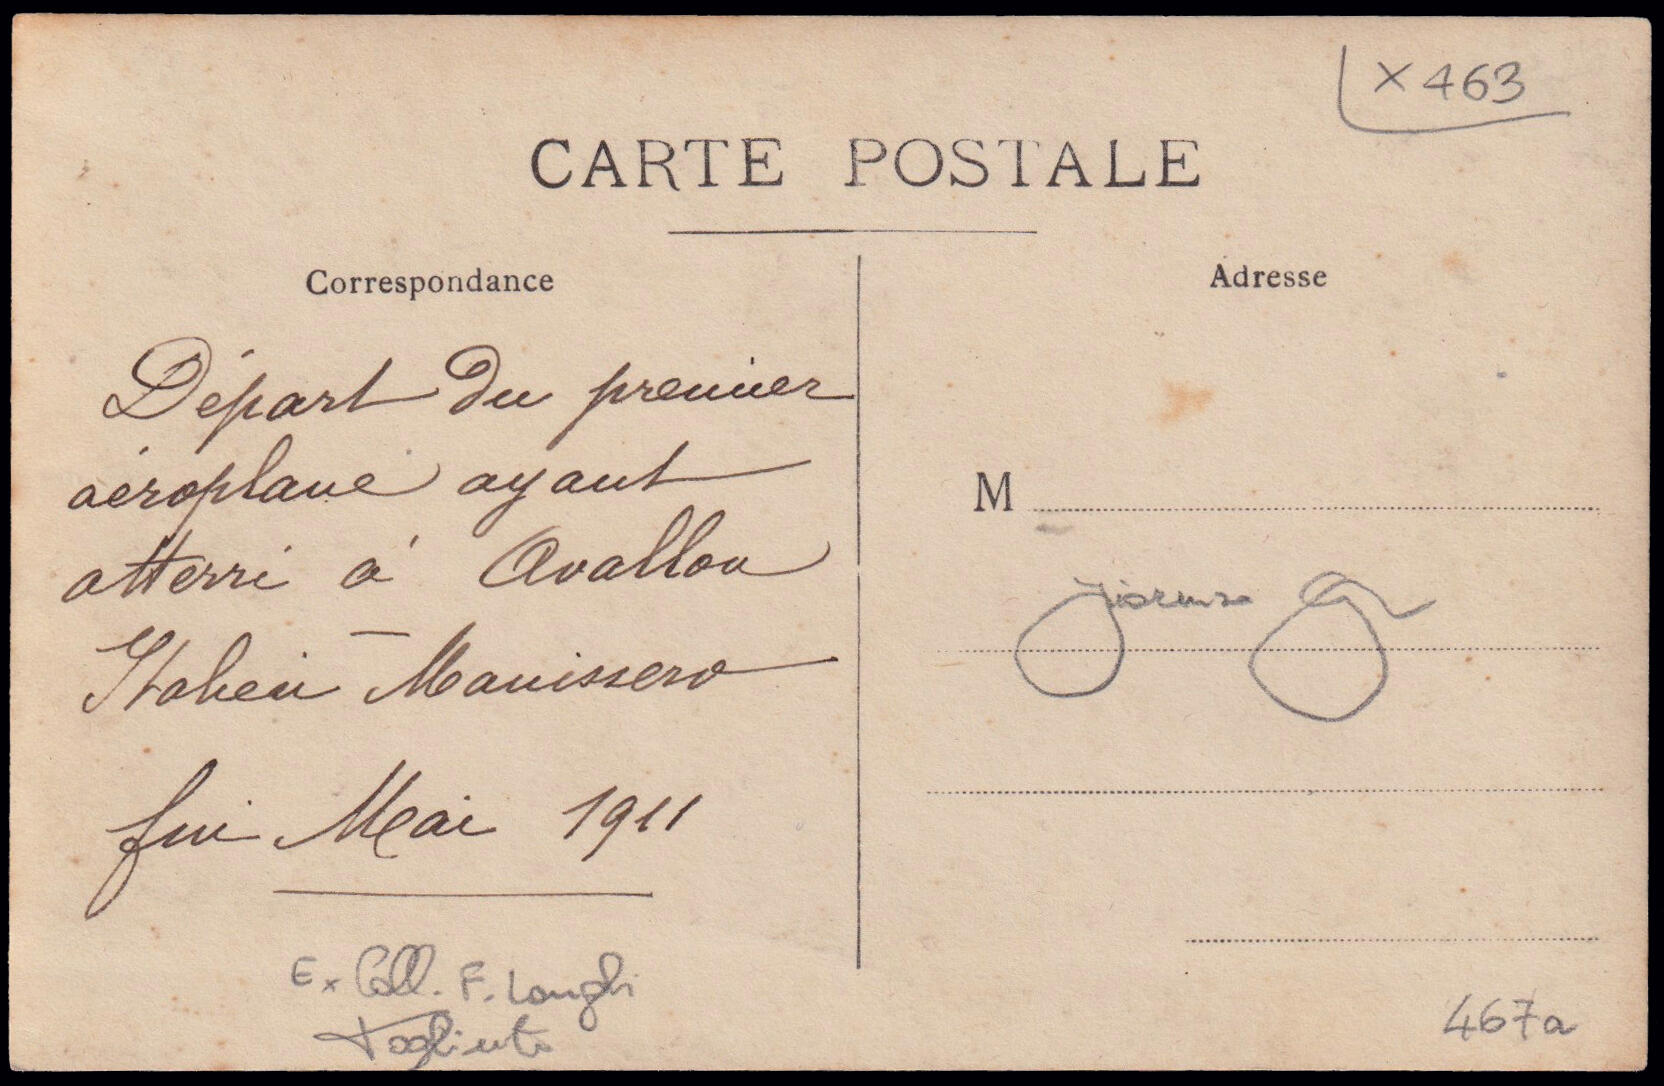 × 463
CARTE POSTALE
Correspondance
Adresse
Départ du premier
aéroplane ayant
atterri à Avallon
Italien – Manissero
fin Mai 1911
M
Ex Coll. F. Longhi
Tagliente
467a